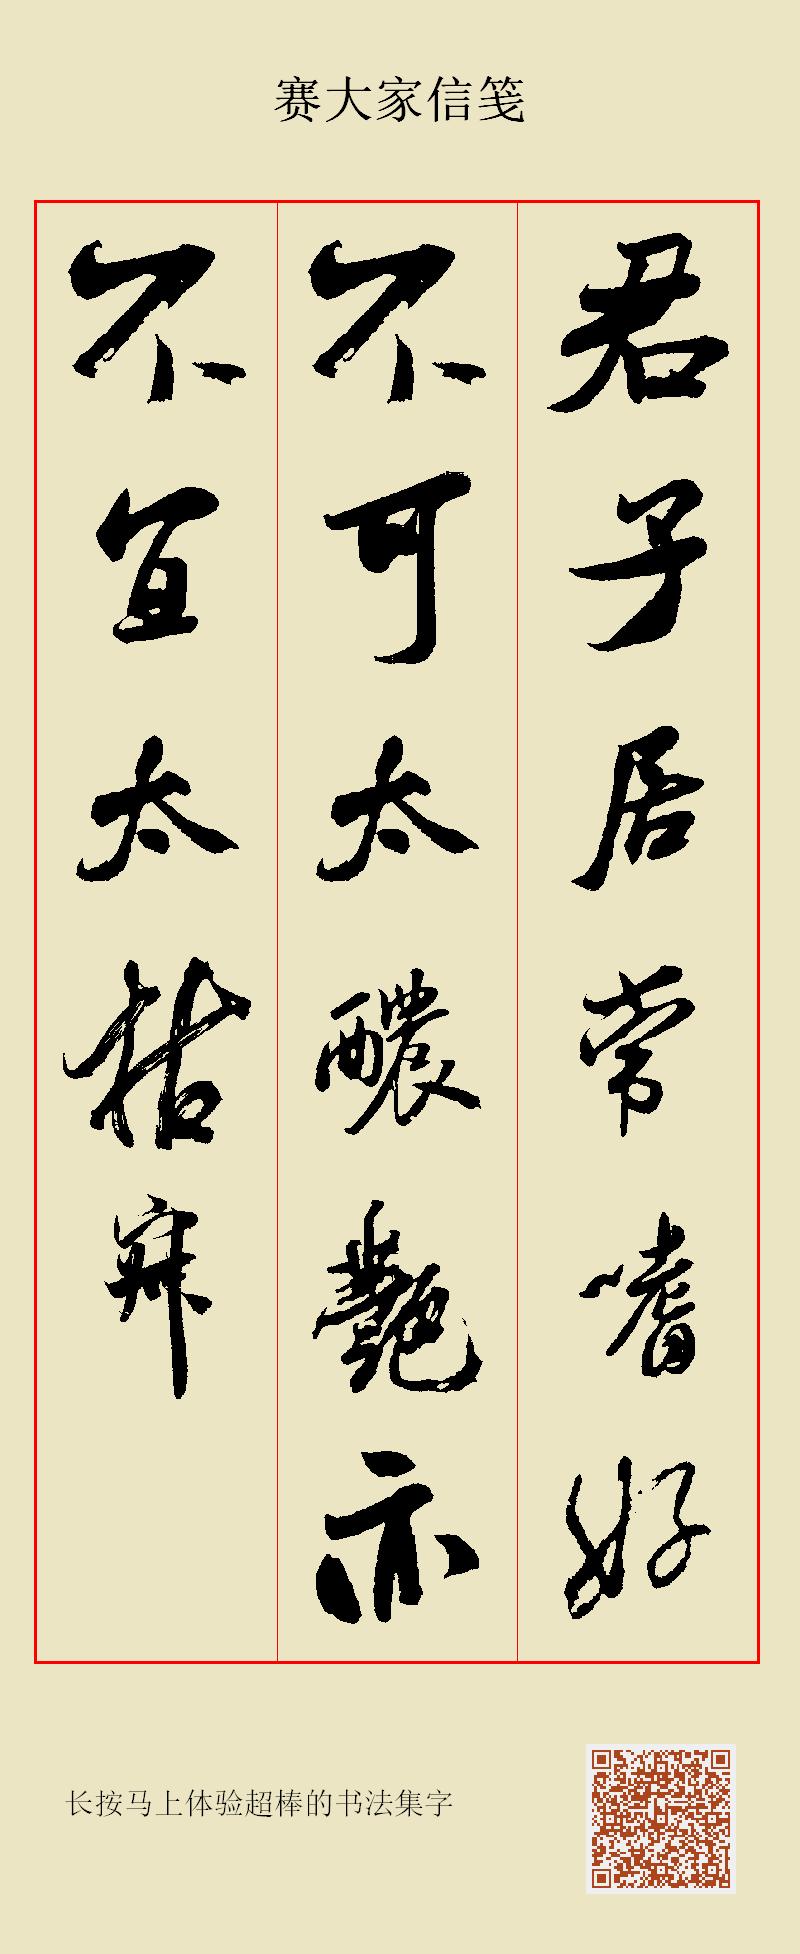 赛大家信笺
君子居常嗜好
不可太醲艶亦
不宜太枯寂
长按马上体验超棒的书法集字